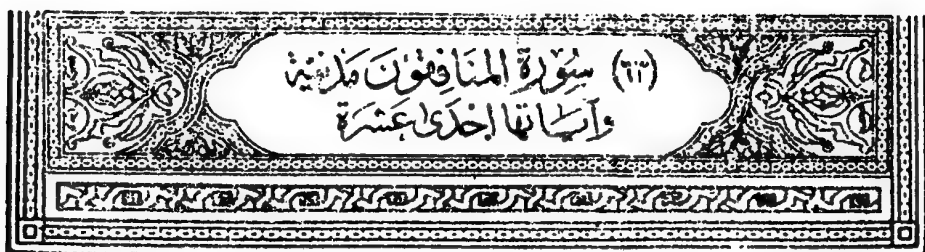 (٦٣) سُورَةُ المنَافِقُونَ مَدَنِيَّة
وَآيَاتُهَا إِحْدَى عَشَرَة